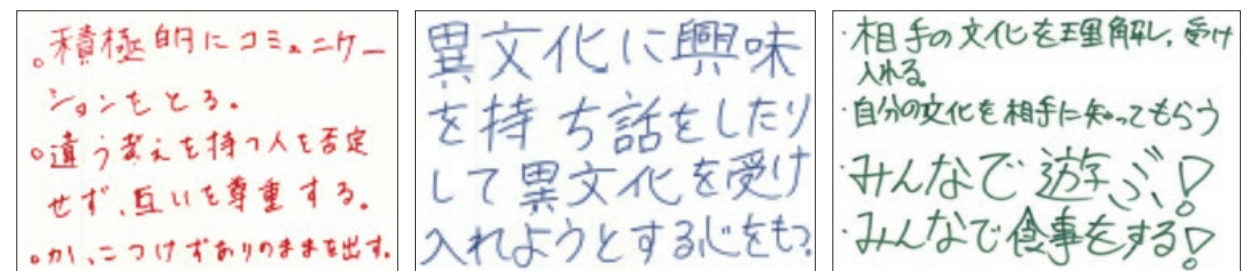 。積極的にコミュニケー
ションをとる。
。違う考えを持つ人を否定
せず、互いを尊重する。
。かっこつけずありのままを出す。
異文化に興味
を持ち話をしたり
して異文化を受け
入れようとする心をもつ。
・相手の文化を理解し、受け
入れる。
・自分の文化を相手に知ってもらう
・みんなで遊ぶ!
・みんなで食事をする!